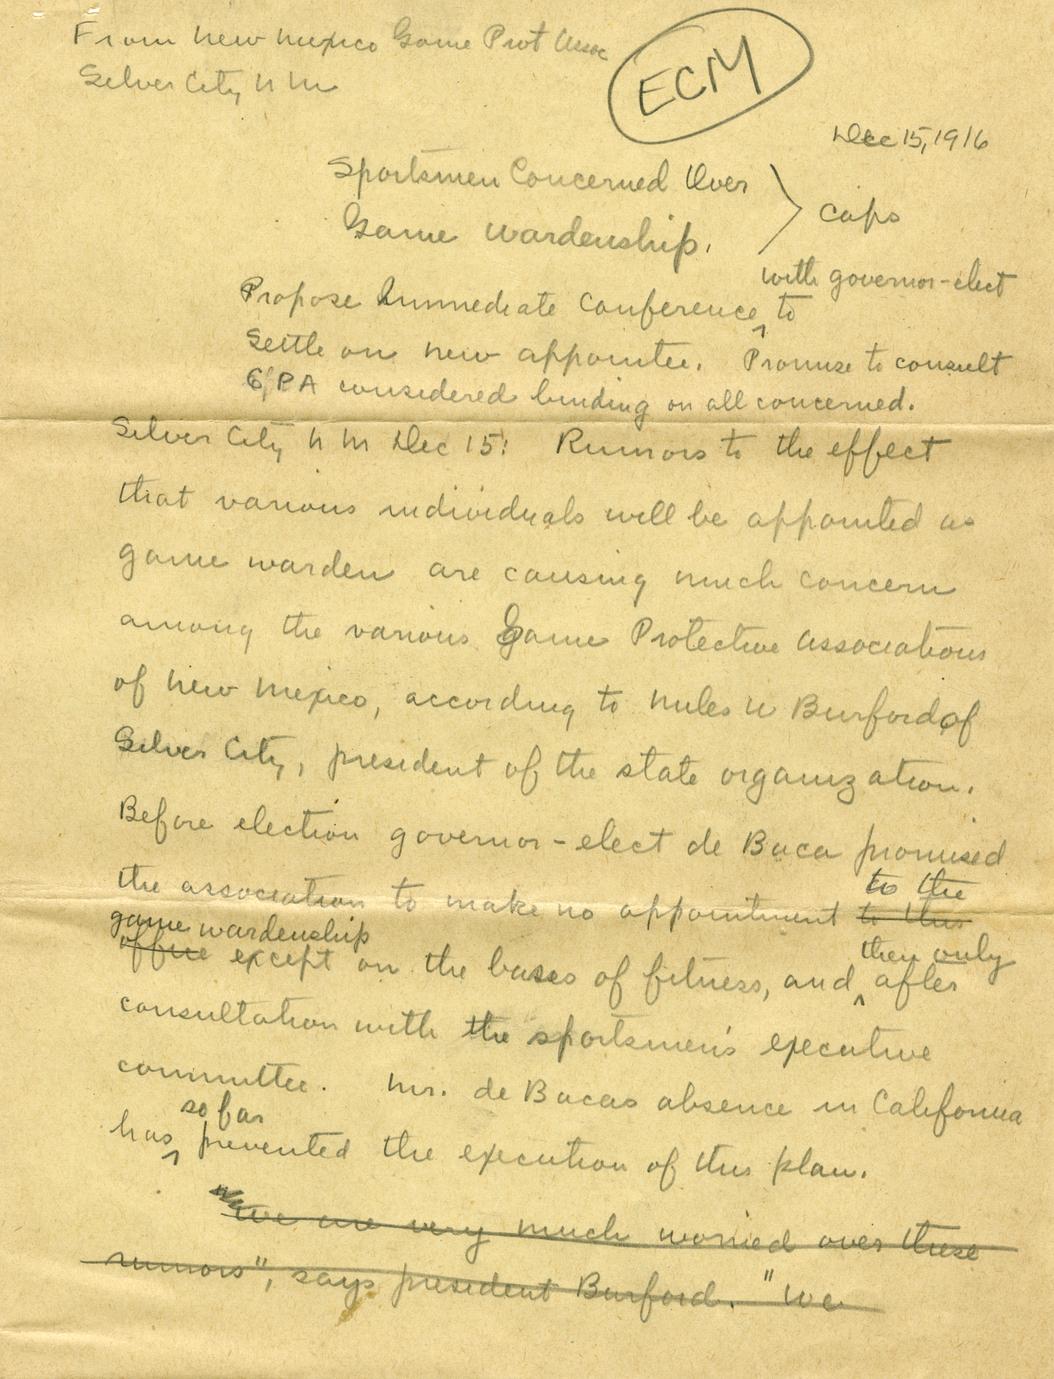 From New Mexico Game Prot Assoc
Silver City N M
ECM
Dec 15, 1916
Sportsmen Concerned Over
Game Wardenship.
caps
with governor-elect
Propose Immediate Conference ^ to
Settle on new appointee. Promise to consult
GPA considered binding on all concerned.
Silver City N M Dec 15: Rumors to the effect
that various individuals will be appointed as
game warden are causing much concern
among the various Game Protective Associations
of New Mexico, according to Miles W Burford of
Silver City, president of the state organization.
Before election governor-elect de Baca promised
to the
the association to make no appointment to this
game wardenship
then only
office except on the bases of fitness, and ^ after
consultation with the sportsmen's executive
committee. Mr. de Bacas absence in California
so far
has ^ prevented the execution of this plan.
"We are very much worried over these
rumors", says president Burford. "We